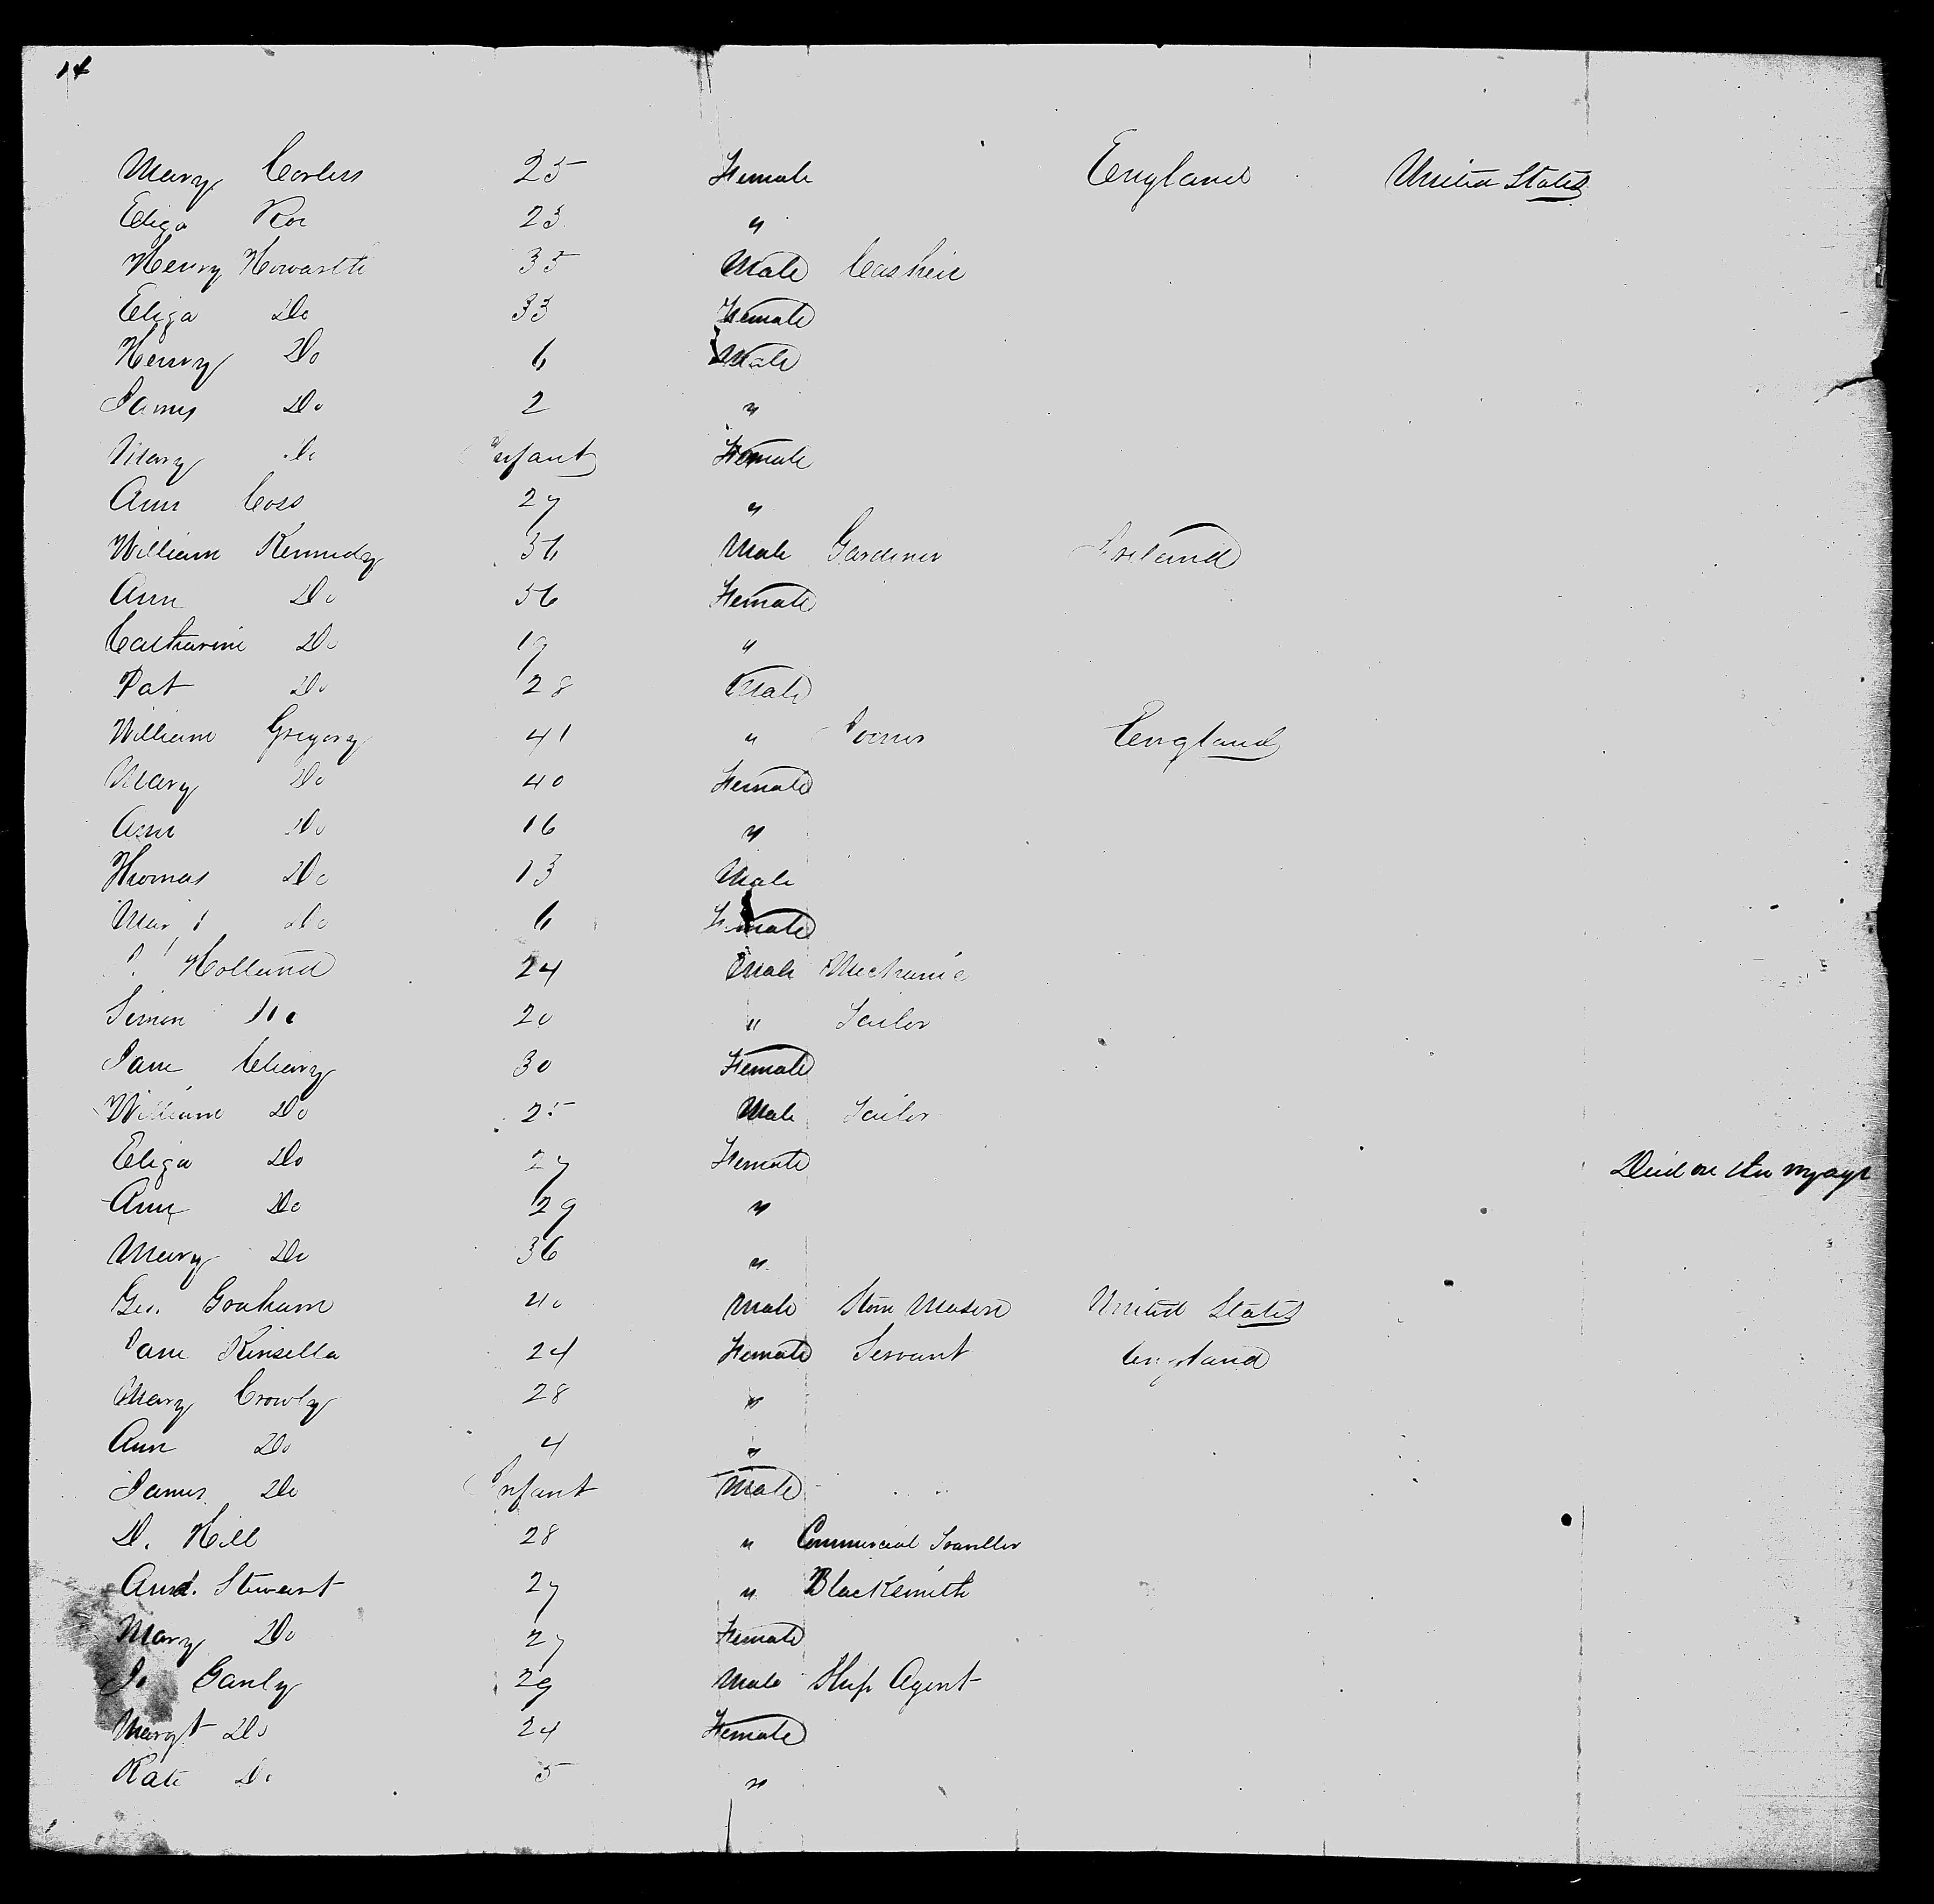 14
Mary Corless 25 Female England United States
Eliza Roe 23 "
Henry Howarth 35 Male Casheir
Eliza Do 33 Female
Henry Do 6 Male
James Do 2 "
Mary Do Infant Female
Ann Coss 27 "
William Kennedy 56 Male Gardiner Ireland
Ann Do 56 Female
Catharine Do 19 "
Pat Do 28 Male
William Gregory 41 " England
Mary Do 40 Female
Ann Do 16 "
Thomas Do 13 Male
Do 6 Female
Holland 24 Male Mechanic
Simon Do 20 " Tailor
Jane Cleary 30 Female
William Do 25 Male Tailor
Eliza Do 27 Female Died on the voyage
Ann Do 29 "
Mary Do 36 "
Geo. Graham 40 Male Stone Mason United States
Jane Kinsella 24 Female Servant England
Mary Crowly 28 "
Ann Do 4 "
James Do Infant Male
D. Hill 28 " Commercial Traveller
And. Stewart 27 " Blacksmith
Mary Do 27 Female
Jo Ganly 29 Male Ship Agent
Margt Do 24 Female
Kate Do 5 "